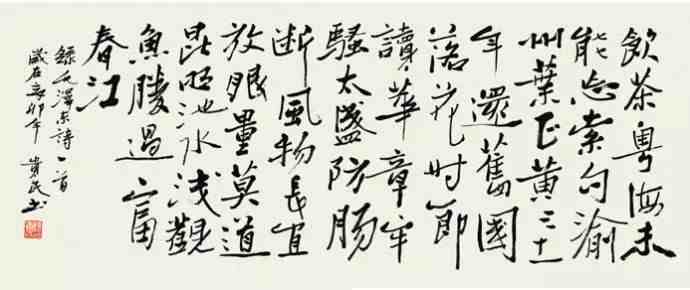 飲茶粵海未
能忘索句渝
州葉正黃三十一
年還舊國
落花时節
讀華章牢
騷太盛防腸
断風物長宜
放眼量莫道
昆明池水浅觀
魚勝過富
春江
錄毛澤东詩一首
歲在辛卯年 貴民书